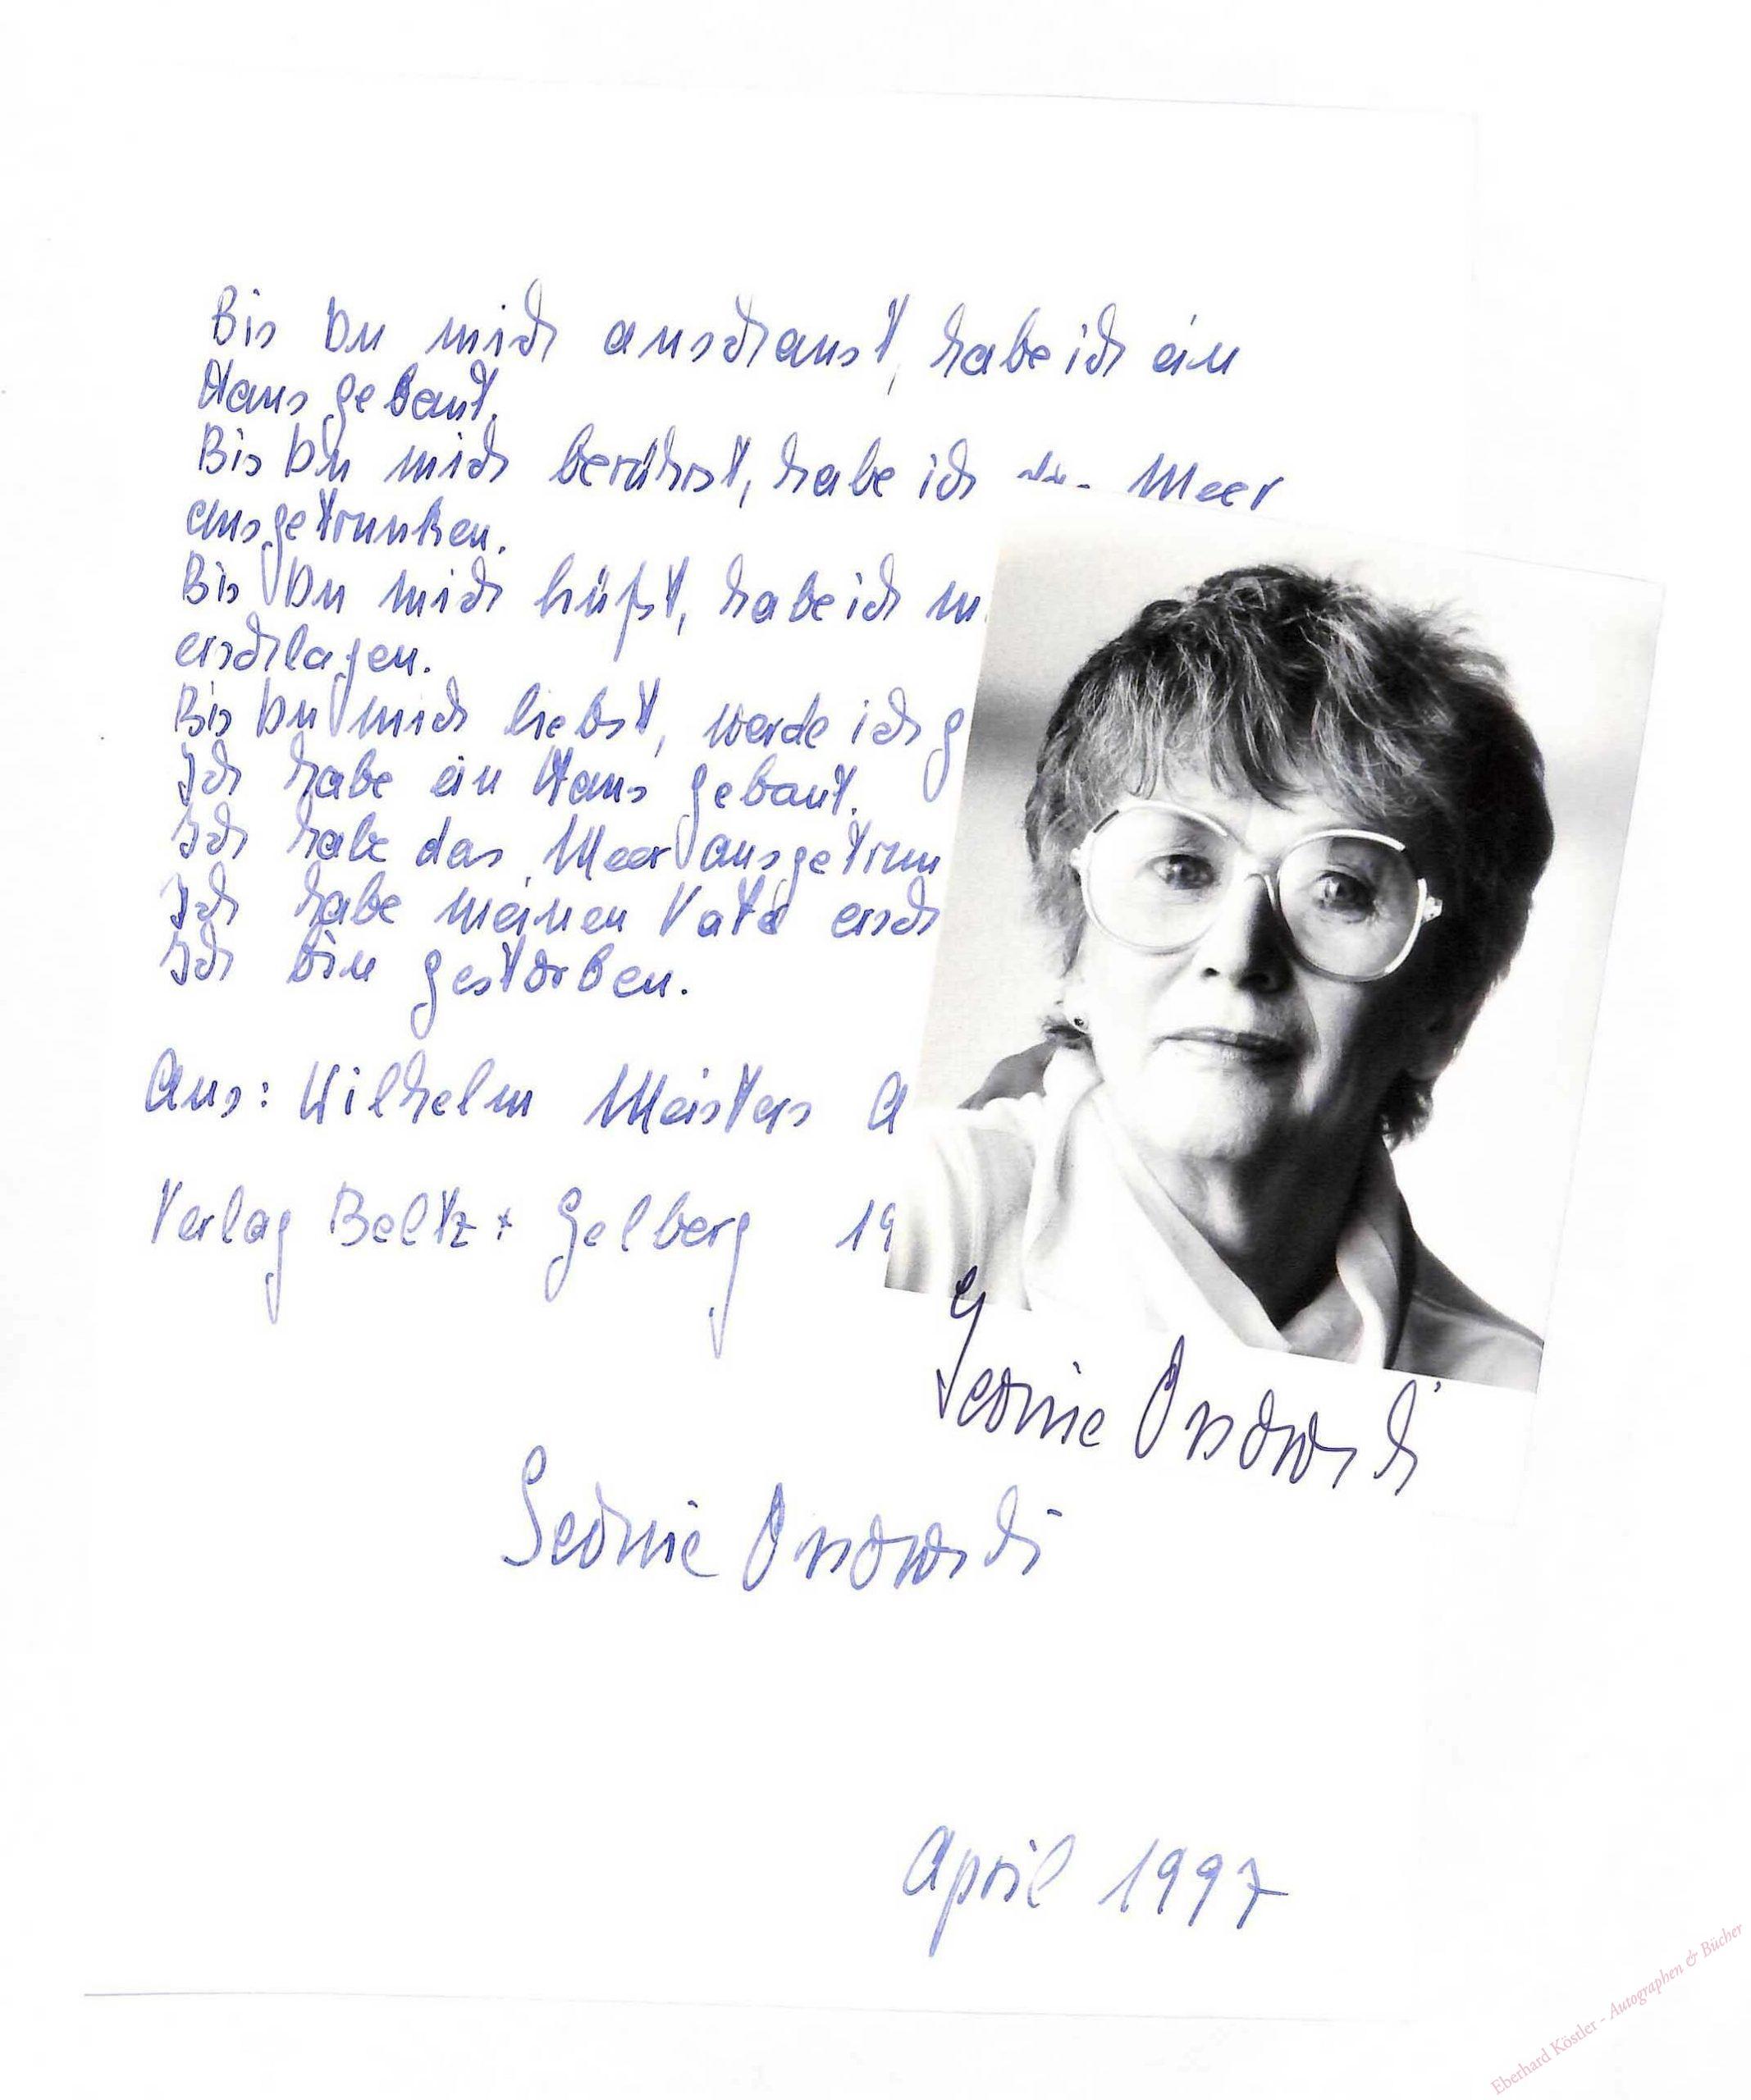 Bis Du mich anschaust, habe ich ein
Haus gebaut.
Bis Du mich berührst, habe ich Meer
ausgetrunken.
Bis Du mich küßt, habe ich m
erschlagen.
Bis Du mich liebst, werde ich g
Ich habe ein Haus gebaut.
Ich habe das Meer ausgetrun
Ich habe meinen Vater ersch
Ich bin gestorben.
Aus: Wilhelm Meisters A
Verlag Beltz + Gelberg 19
Leonie Ossowski
Leonie Ossowski
April 1997
Eberhard Köstler - Autographen & Bücher